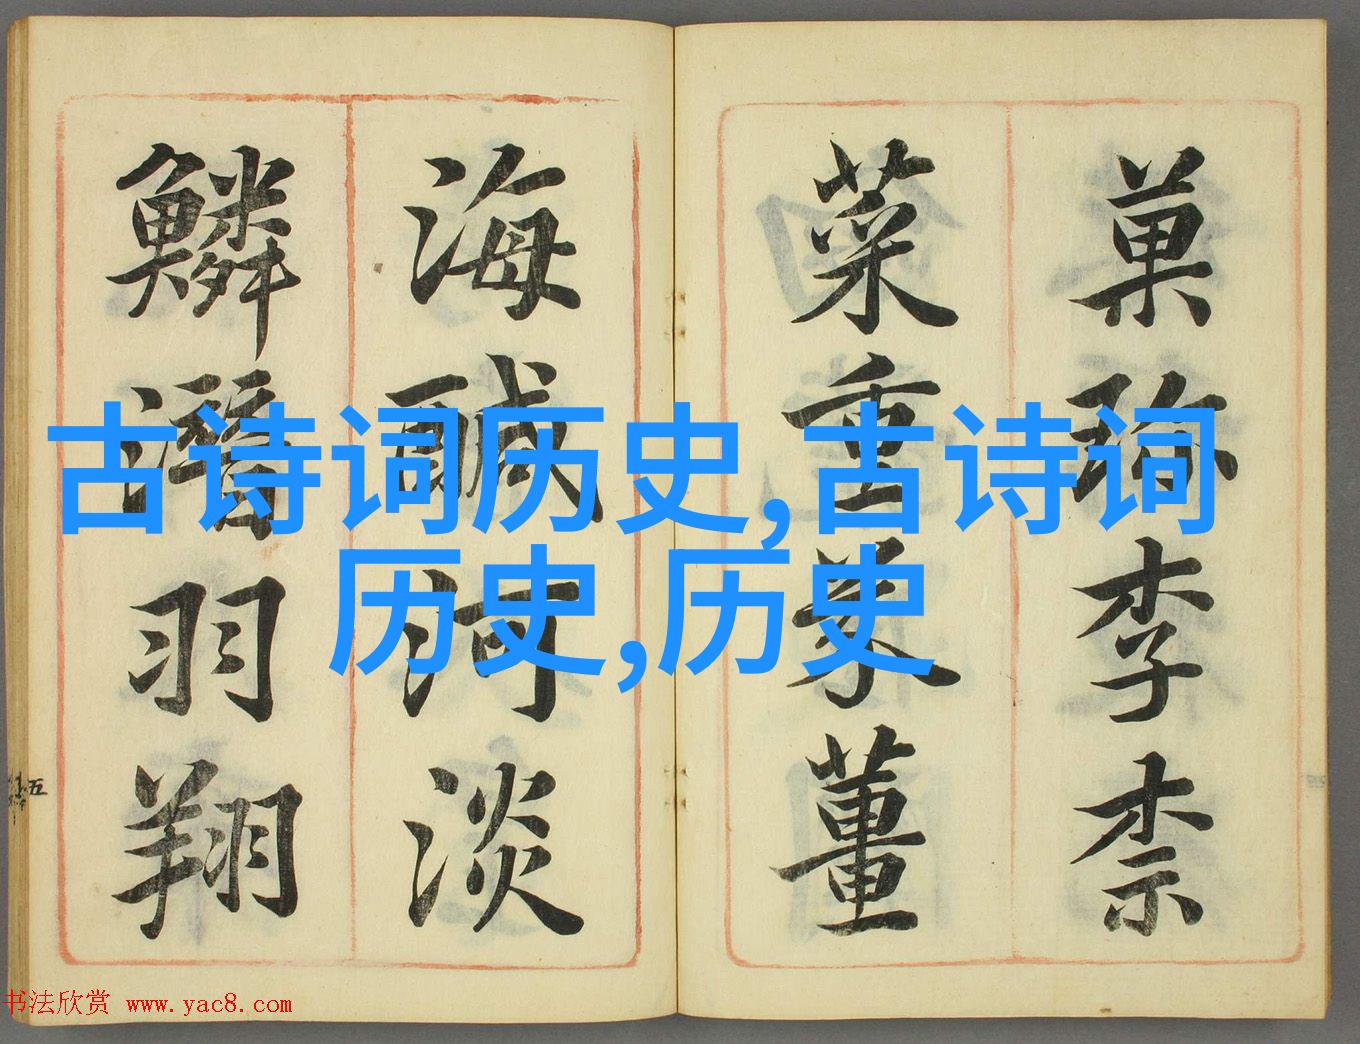 菓珍李柰
菜重芥薑
海醎河淡
鱗潛羽翔
五
古诗词历史,古诗词
历史,历史
书法欣赏 www.yac8.com